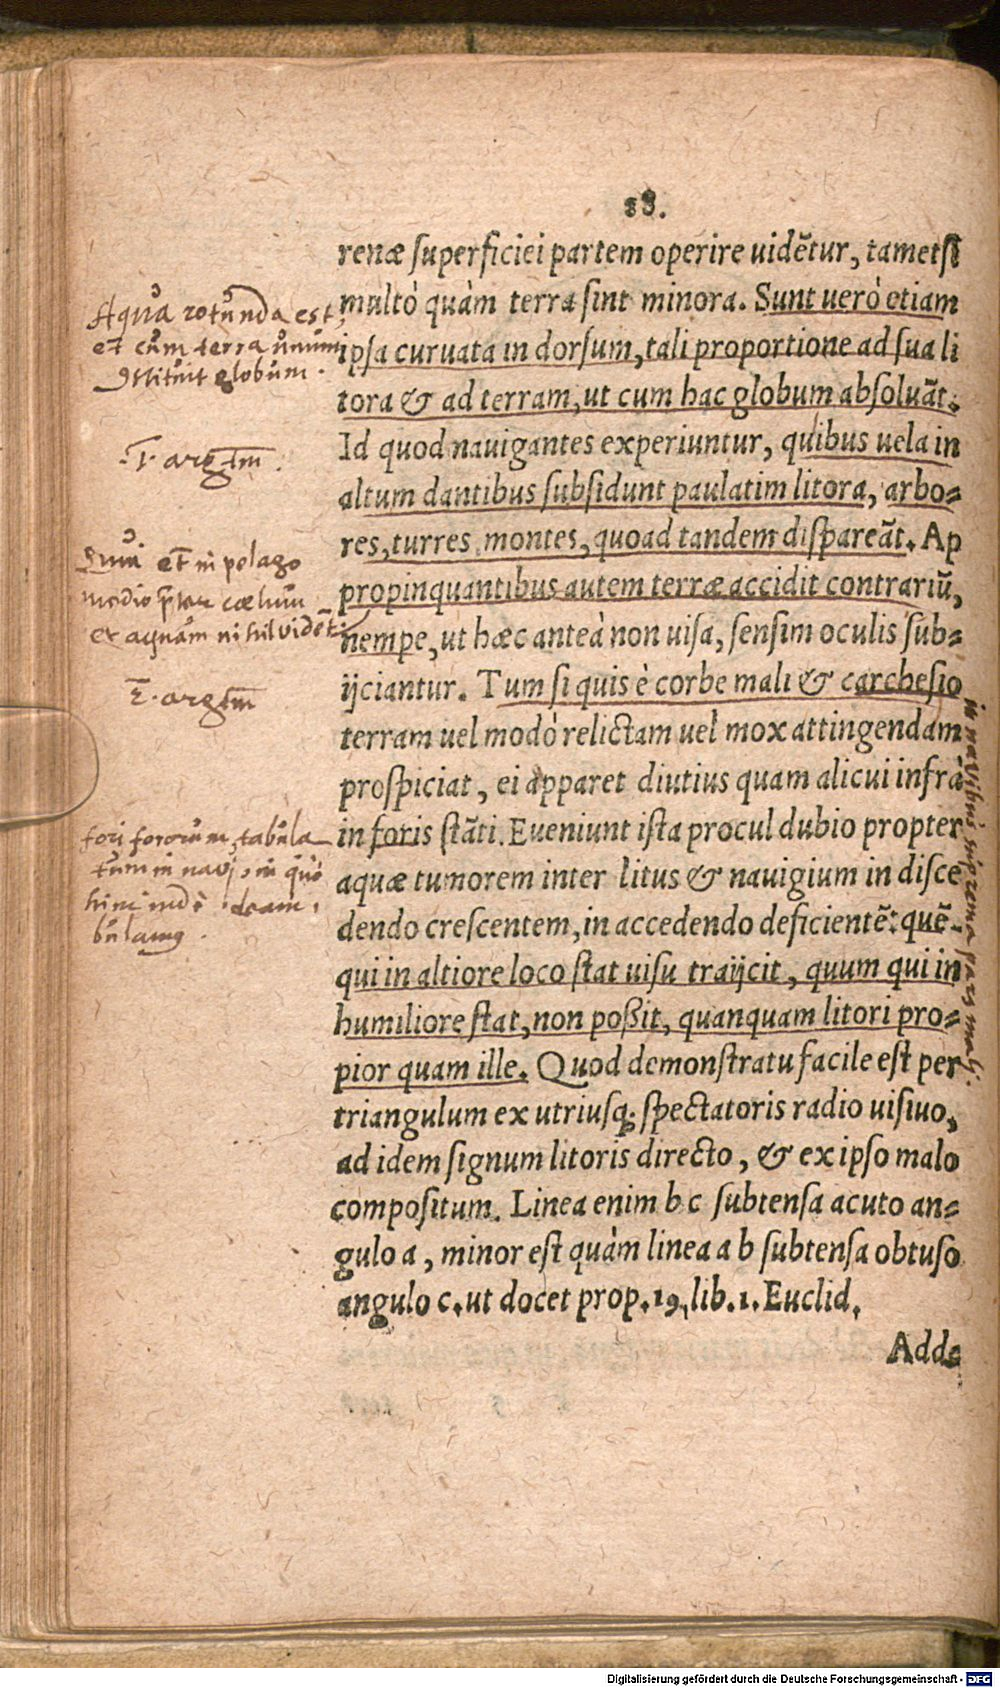 18.
renæ superficiei partem operire uidētur, tametsi
multò quàm terra sint minora. Sunt uerò etiam
ipsa curuata in dorsum, tali proportione ad sua li
tora & ad terram, ut cum hac globum absoluāt.
Id quod nauigantes experiuntur, quibus uela in
altum dantibus subsidunt paulatim litora, arbo-
res, turres, montes, quoad tandem dispareāt. Ap
propinquantibus autem terræ accidit contrariū,
nempe, ut hæc anteà non uisa, sensim oculis sub-
ijciantur. Tum si quis è corbe mali & carchesio
terram uel modò relictam uel mox attingendam
prospiciat, ei apparet diutius quam alicui infrà
in foris stāti. Eueniunt ista procul dubio propter
aquæ tumorem inter litus & nauigium in disce
dendo crescentem, in accedendo deficientē: quē
qui in altiore loco stat uisu traijcit, quum qui in
humiliore stat, non poßit, quanquam litori pro-
pior quam ille. Quod demonstratu facile est per
triangulum ex utriusq; spectatoris radio uisiuo,
ad idem signum litoris directo, & ex ipso malo
compositum. Linea enim b c subtensa acuto an-
gulo a, minor est quàm linea a b subtensa obtuso
angulo c. ut docet prop. 19. lib. 1. Euclid.
Adde
Aqua rotunda est,
et cum terra unum
9stituit globum.
.1. argtm.
et in pelago
medio cælum
et aquam nihil vidēt.
2. argtm
fori fororum, tabula
tum in navi, in quo
hinc inde deam
bulam9.
in navibus suprema pars mali.
Digitalisierung gefördert durch die Deutsche Forschungsgemeinschaft - DFG